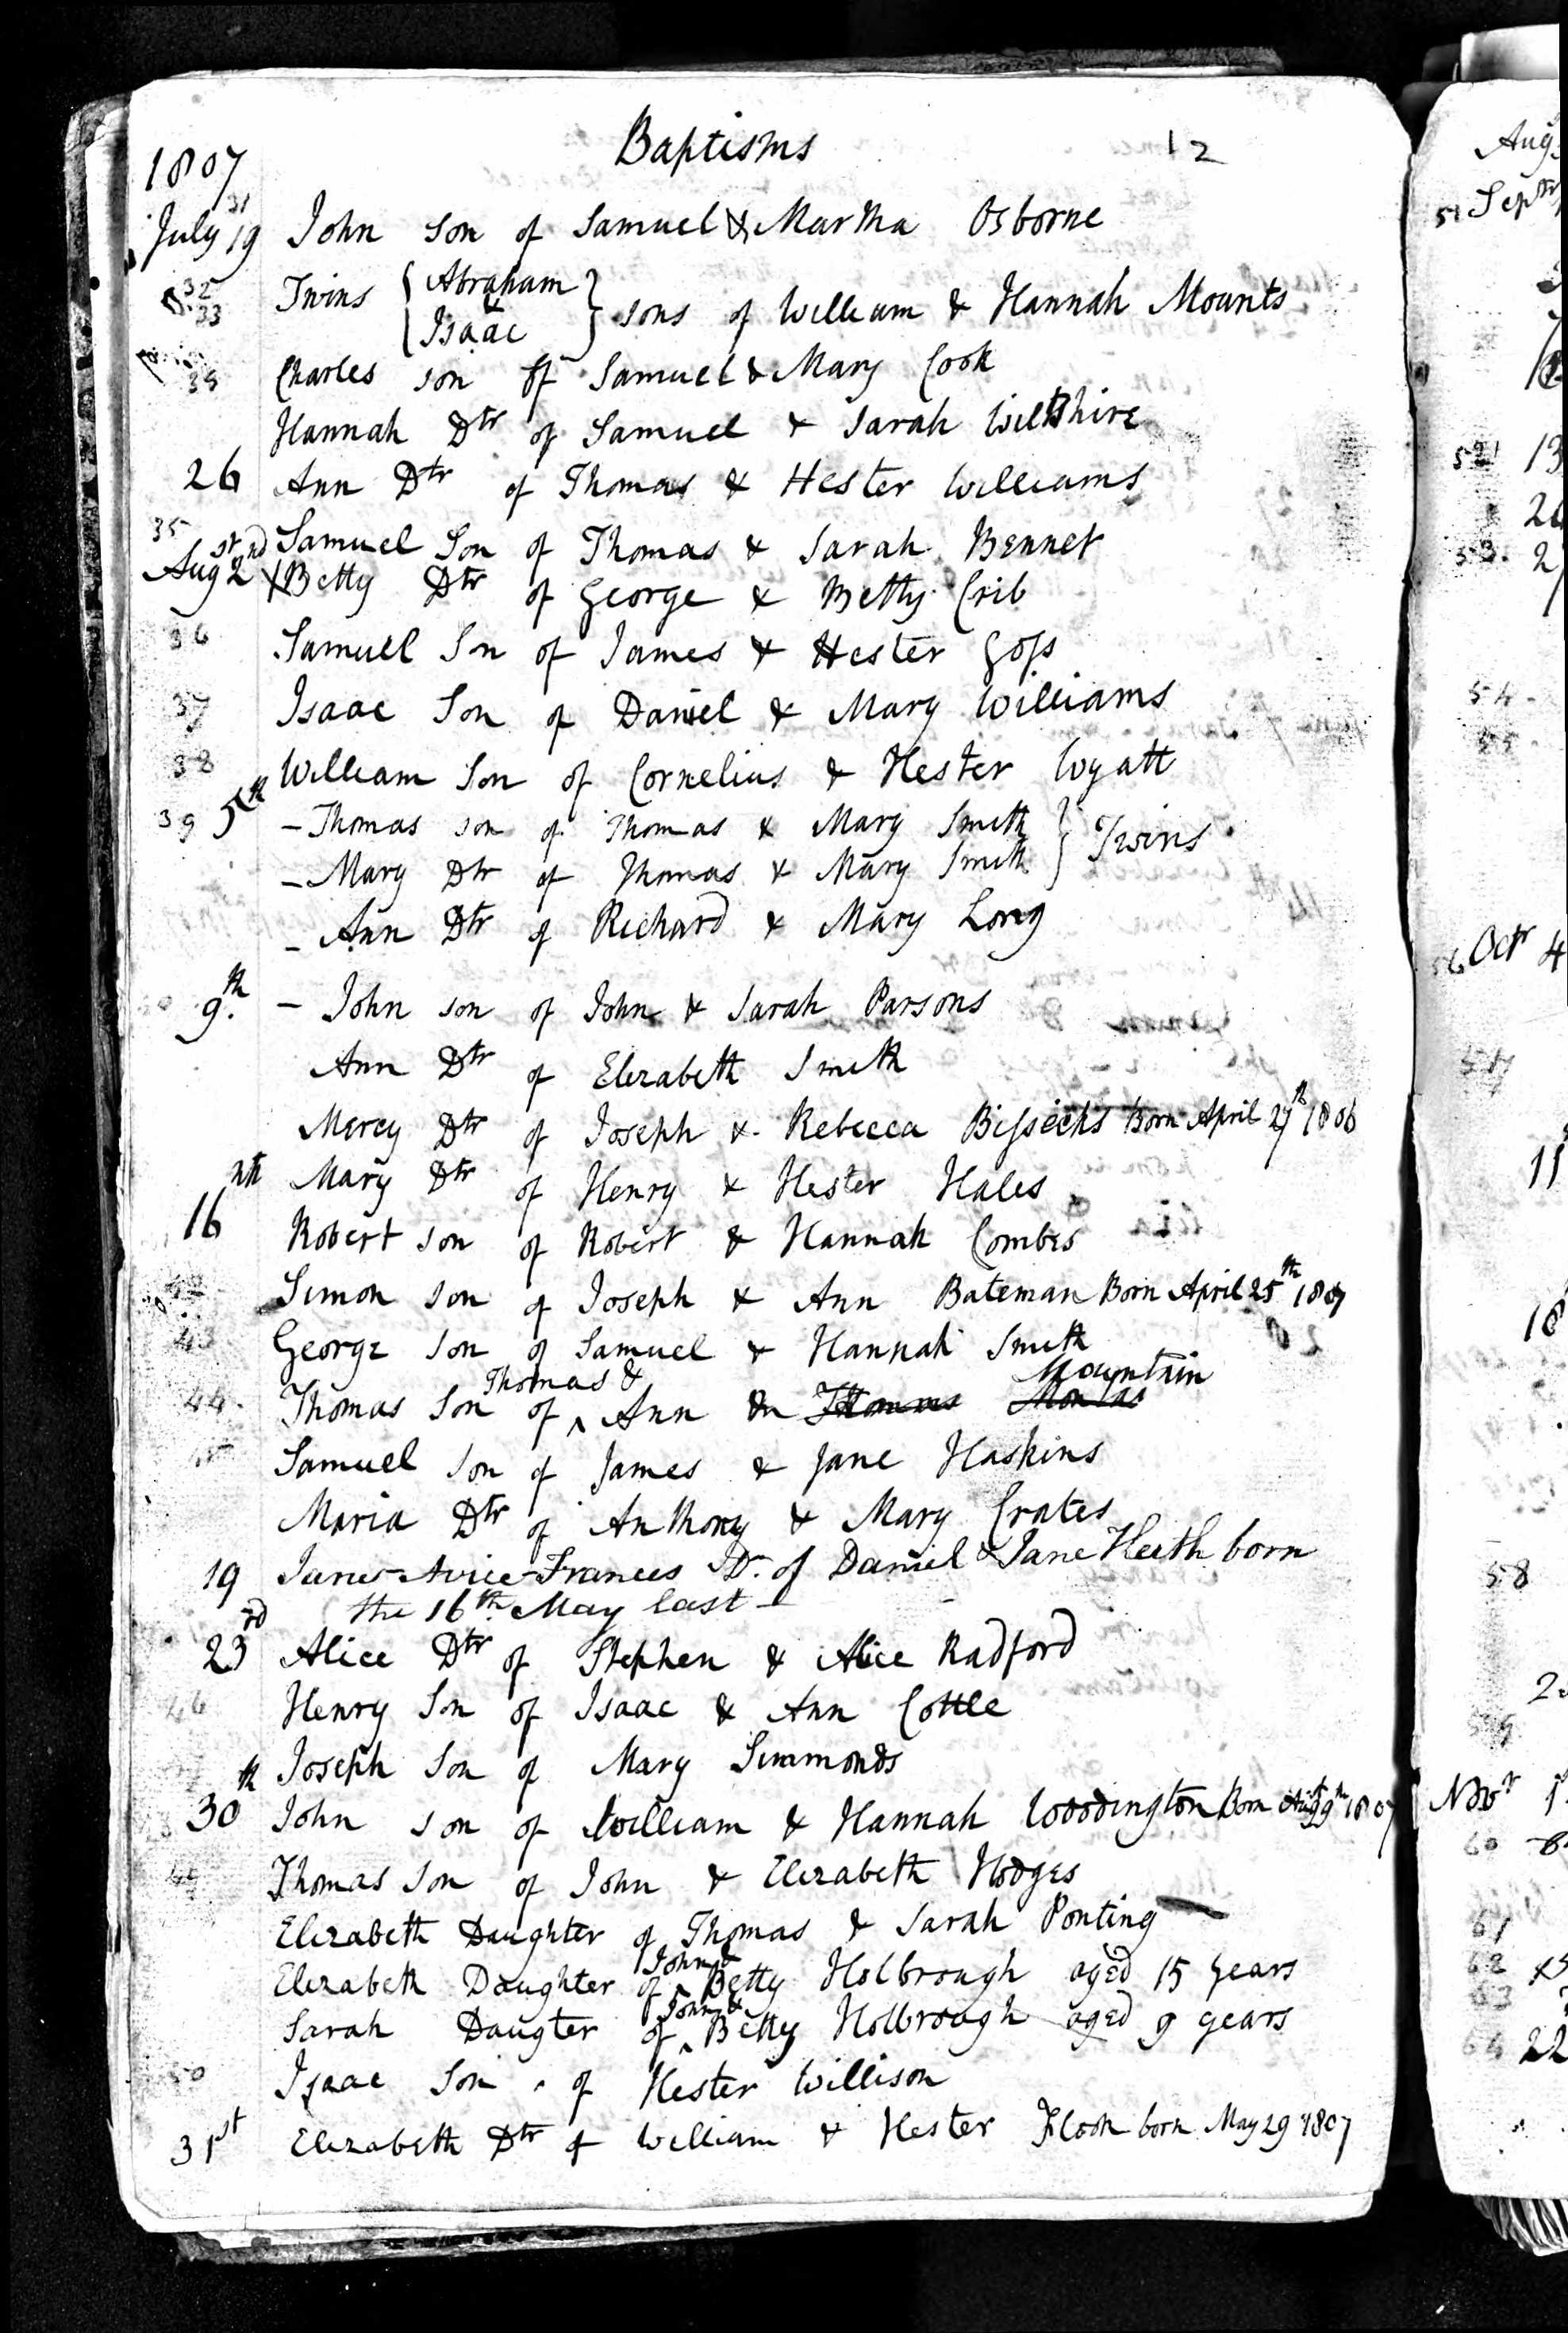 Baptisms 12
1807
31
July 19 John son of Samuel & Martha Osborne
32 Twins { Abraham
33 & Isaac } sons of William & Hannah Mounts
34 Charles son of Samuel & Mary Cook
Hannah Dtr of Samuel & Sarah Willshire
26 Ann Dtr of Thomas & Hester Williams
35 Samuel Son of Thomas & Sarah Bennet
Aug 2nd Betty Dtr of George & Betty Crib
36 Samuel Son of James & Hester Goss
37 Isaac Son of Daniel & Mary Williams
38 William Son of Cornelius & Hester Wyatt
39 5th - Thomas son of Thomas & Mary Smith } Twins
- Mary Dtr of Thomas & Mary Smith
- Ann Dtr of Richard & Mary Long
9th - John son of John & Sarah Parsons
Ann Dtr of Elizabeth Smith
Mercy Dtr of Joseph & Rebecca Bissicks Born April 27th 1806
Mary Dtr of Henry & Hester Hales
16th Robert son of Robert & Hannah Combes
Simon son of Joseph & Ann Bateman Born April 25th 1807
43 George son of Samuel & Hannah Smith
Thomas & Mountain
44 Thomas Son of ^ Ann & Thomas
45 Samuel son of James & Jane Haskins
Maria Dtr of Anthony & Mary Crates
19 Jane-Avice-Frances Dr. of Daniel & Jane Heath born
the 16th May last -
23rd Alice Dtr of Stephen & Alice Radford
46 Henry Son of Isaac & Ann Cottle
Joseph Son of Mary Simmonds
30th John son of William & Hannah Woodington Born Augt 9th 1807
Thomas Son of John & Elizabeth Hodges
Elizabeth Daughter of Thomas & Sarah Ponting
John &
Elizabeth Daughter of ^ Betty Holbrough aged 15 years
John &
Sarah Daugter of ^ Betty Holbrough aged 9 years
50 Isaac Son of Hester Willison
31st Elizabeth Dtr of William & Hester Flook born May 29 1807
Aug
51 Septr
52 13
53 2
54
55
56 Octr 4
57
11
18
58
59
Novr 1
60
61
62
63
64 22